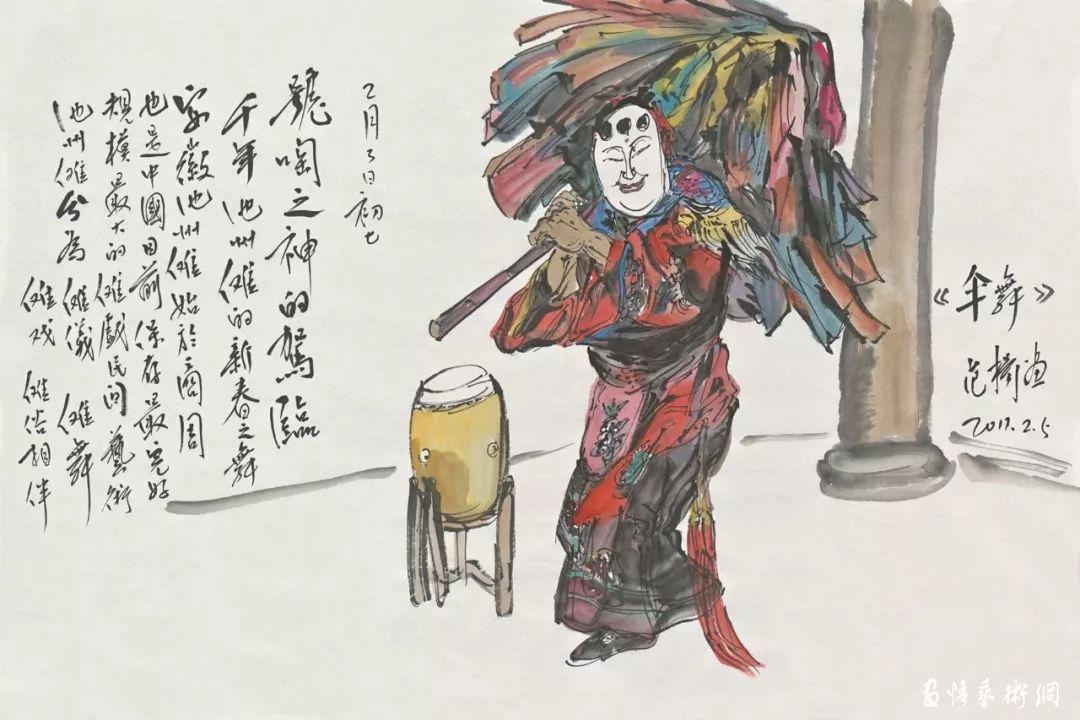 《伞舞》
范 画
2017.2.5
2月3日初七
號啕之神的駕臨
千年池州傩的新春之舞
安徽池州傩始於商周
也是中國目前保存最完好
規模最大的傩戲民间藝術
池州傩分为 傩儀 傩舞
傩戏 傩俗相伴
藝術網